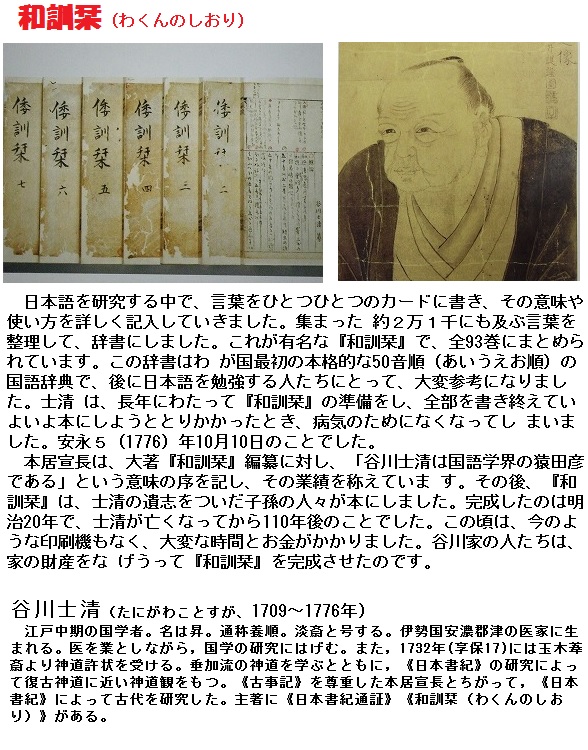 和訓栞（わくんのしおり）
倭訓栞 七
倭訓栞 六
倭訓栞 五
倭訓栞 四
倭訓栞 三
倭訓栞 二
谷川士清
像
日本語を研究する中で、言葉をひとつひとつのカードに書き、その意味や
使い方を詳しく記入していきました。集まった 約２万１千にも及ぶ言葉を
整理して、辞書にしました。これが有名な『和訓栞』で、全93巻にまとめら
れています。この辞書はわ が国最初の本格的な50音順（あいうえお順）の
国語辞典で、後に日本語を勉強する人たちにとって、大変参考になりまし
た。士清 は、長年にわたって『和訓栞』の準備をし、全部を書き終えてい
よいよ本にしようととりかかったとき、病気のためになくなってし まいま
した。安永５（1776）年10月10日のことでした。
本居宣長は、大著『和訓栞』編纂に対し、「谷川士清は国語学界の猿田彦
である」という意味の序を記し、その業績を称えていま す。その後、『和
訓栞』は、士清の遺志をついだ子孫の人々が本にしました。完成したのは明
治20年で、士清が亡くなってから110年後のことでした。この頃は、今のよ
うな印刷機もなく、大変な時間とお金がかかりました。谷川家の人たちは、
家の財産をな げうって『和訓栞』を完成させたのです。
谷川士清（たにがわことすが、1709～1776年）
江戸中期の国学者。名は昇。通称養順。淡斎と号する。伊勢国安濃郡津の医家に生
まれる。医を業としながら，国学の研究にはげむ。また，1732年(享保17)には玉木葦
斎より神道許状を受ける。垂加流の神道を学ぶとともに，《日本書紀》の研究によっ
て復古神道に近い神道観をもつ。《古事記》を尊重した本居宣長とちがって，《日本
書紀》によって古代を研究した。主著に《日本書紀通証》《和訓栞（わくんのしお
り）》がある。